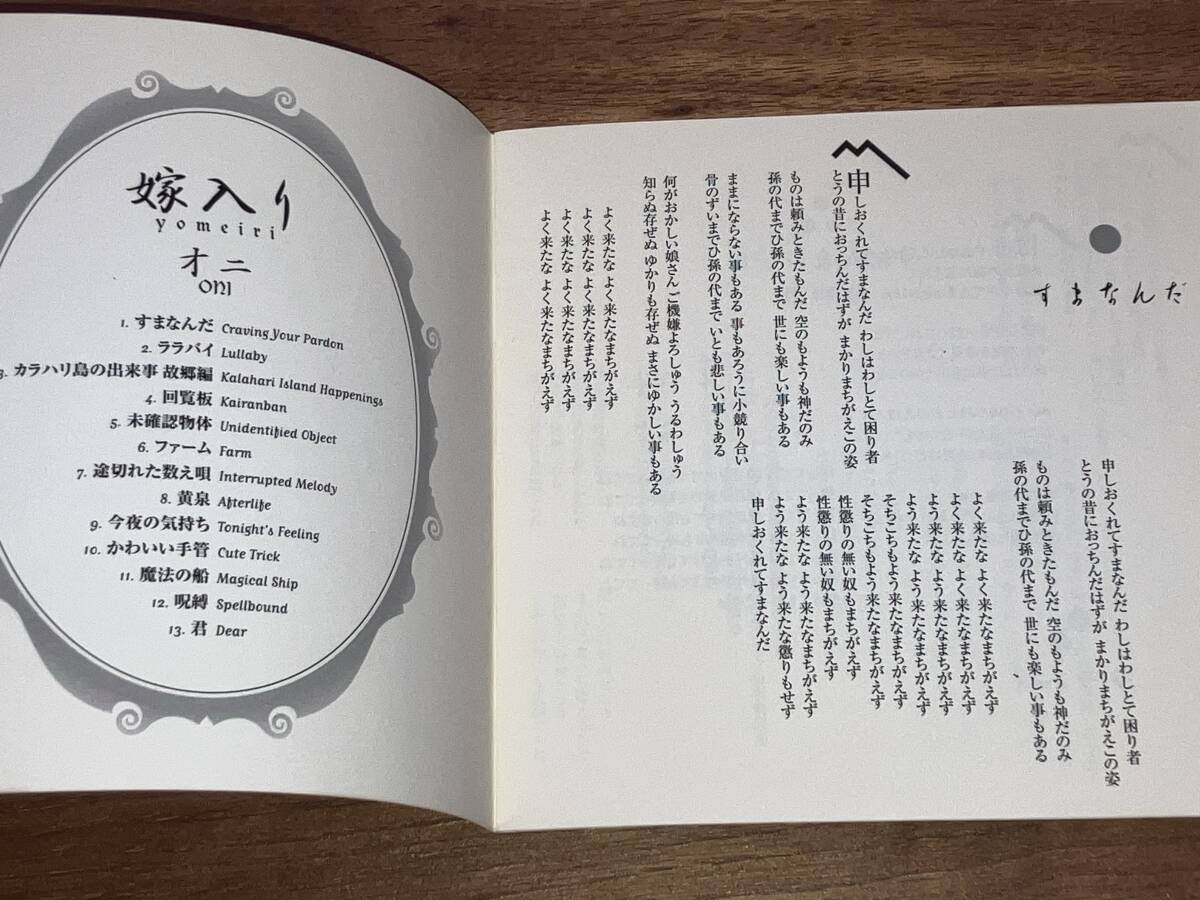 嫁入り
yomeiri
オニ
ONI
1. すまなんだ Craving Your Pardon
2. ララバイ Lullaby
3. カラハリ島の出来事 故郷編 Kalahari Island Happenings
4. 回覧板 Kairanban
5. 未確認物体 Unidentified Object
6. ファーム Farm
7. 途切れた数え唄 Interrupted Melody
8. 黄泉 Afterlife
9. 今夜の気持ち Tonight's Feeling
10. かわいい手管 Cute Trick
11. 魔法の船 Magical Ship
12. 呪縛 Spellbound
13. 君 Dear
すまなんだ
申しおくれてすまなんだ わしはわしとて困り者
とうの昔におっちんだはずが まかりまちがえこの姿
ものは頼みときたもんだ 空のもようも神だのみ
孫の代までひ孫の代まで 世にも楽しい事もある
ままにならない事もある 事もあろうに小競り合い
骨のずいまでひ孫の代まで いとも悲しい事もある
何がおかしい娘さん ご機嫌よろしゅう うるわしゅう
知らぬ存ぜぬ ゆかりも存ぜぬ まさにゆかしい事もある
よく来たな よく来たなまちがえず
よく来たな よく来たなまちがえず
よく来たな よく来たなまちがえず
よく来たな よく来たなまちがえず
申しおくれてすまなんだ わしはわしとて困り者
とうの昔におっちんだはずが まかりまちがえこの姿
ものは頼みときたもんだ 空のもようも神だのみ
孫の代までひ孫の代まで 世にも楽しい事もある
よく来たな よく来たなまちがえず
よく来たな よく来たなまちがえず
よう来たな よう来たなまちがえず
よう来たな よう来たなまちがえず
そちこちもよう来たなまちがえず
そちこちもよう来たなまちがえず
性懲りの無い奴もまちがえず
性懲りの無い奴もまちがえず
よう来たな よう来たなまちがえず
よう来たな よう来たな懲りもせず
申しおくれてすまなんだ